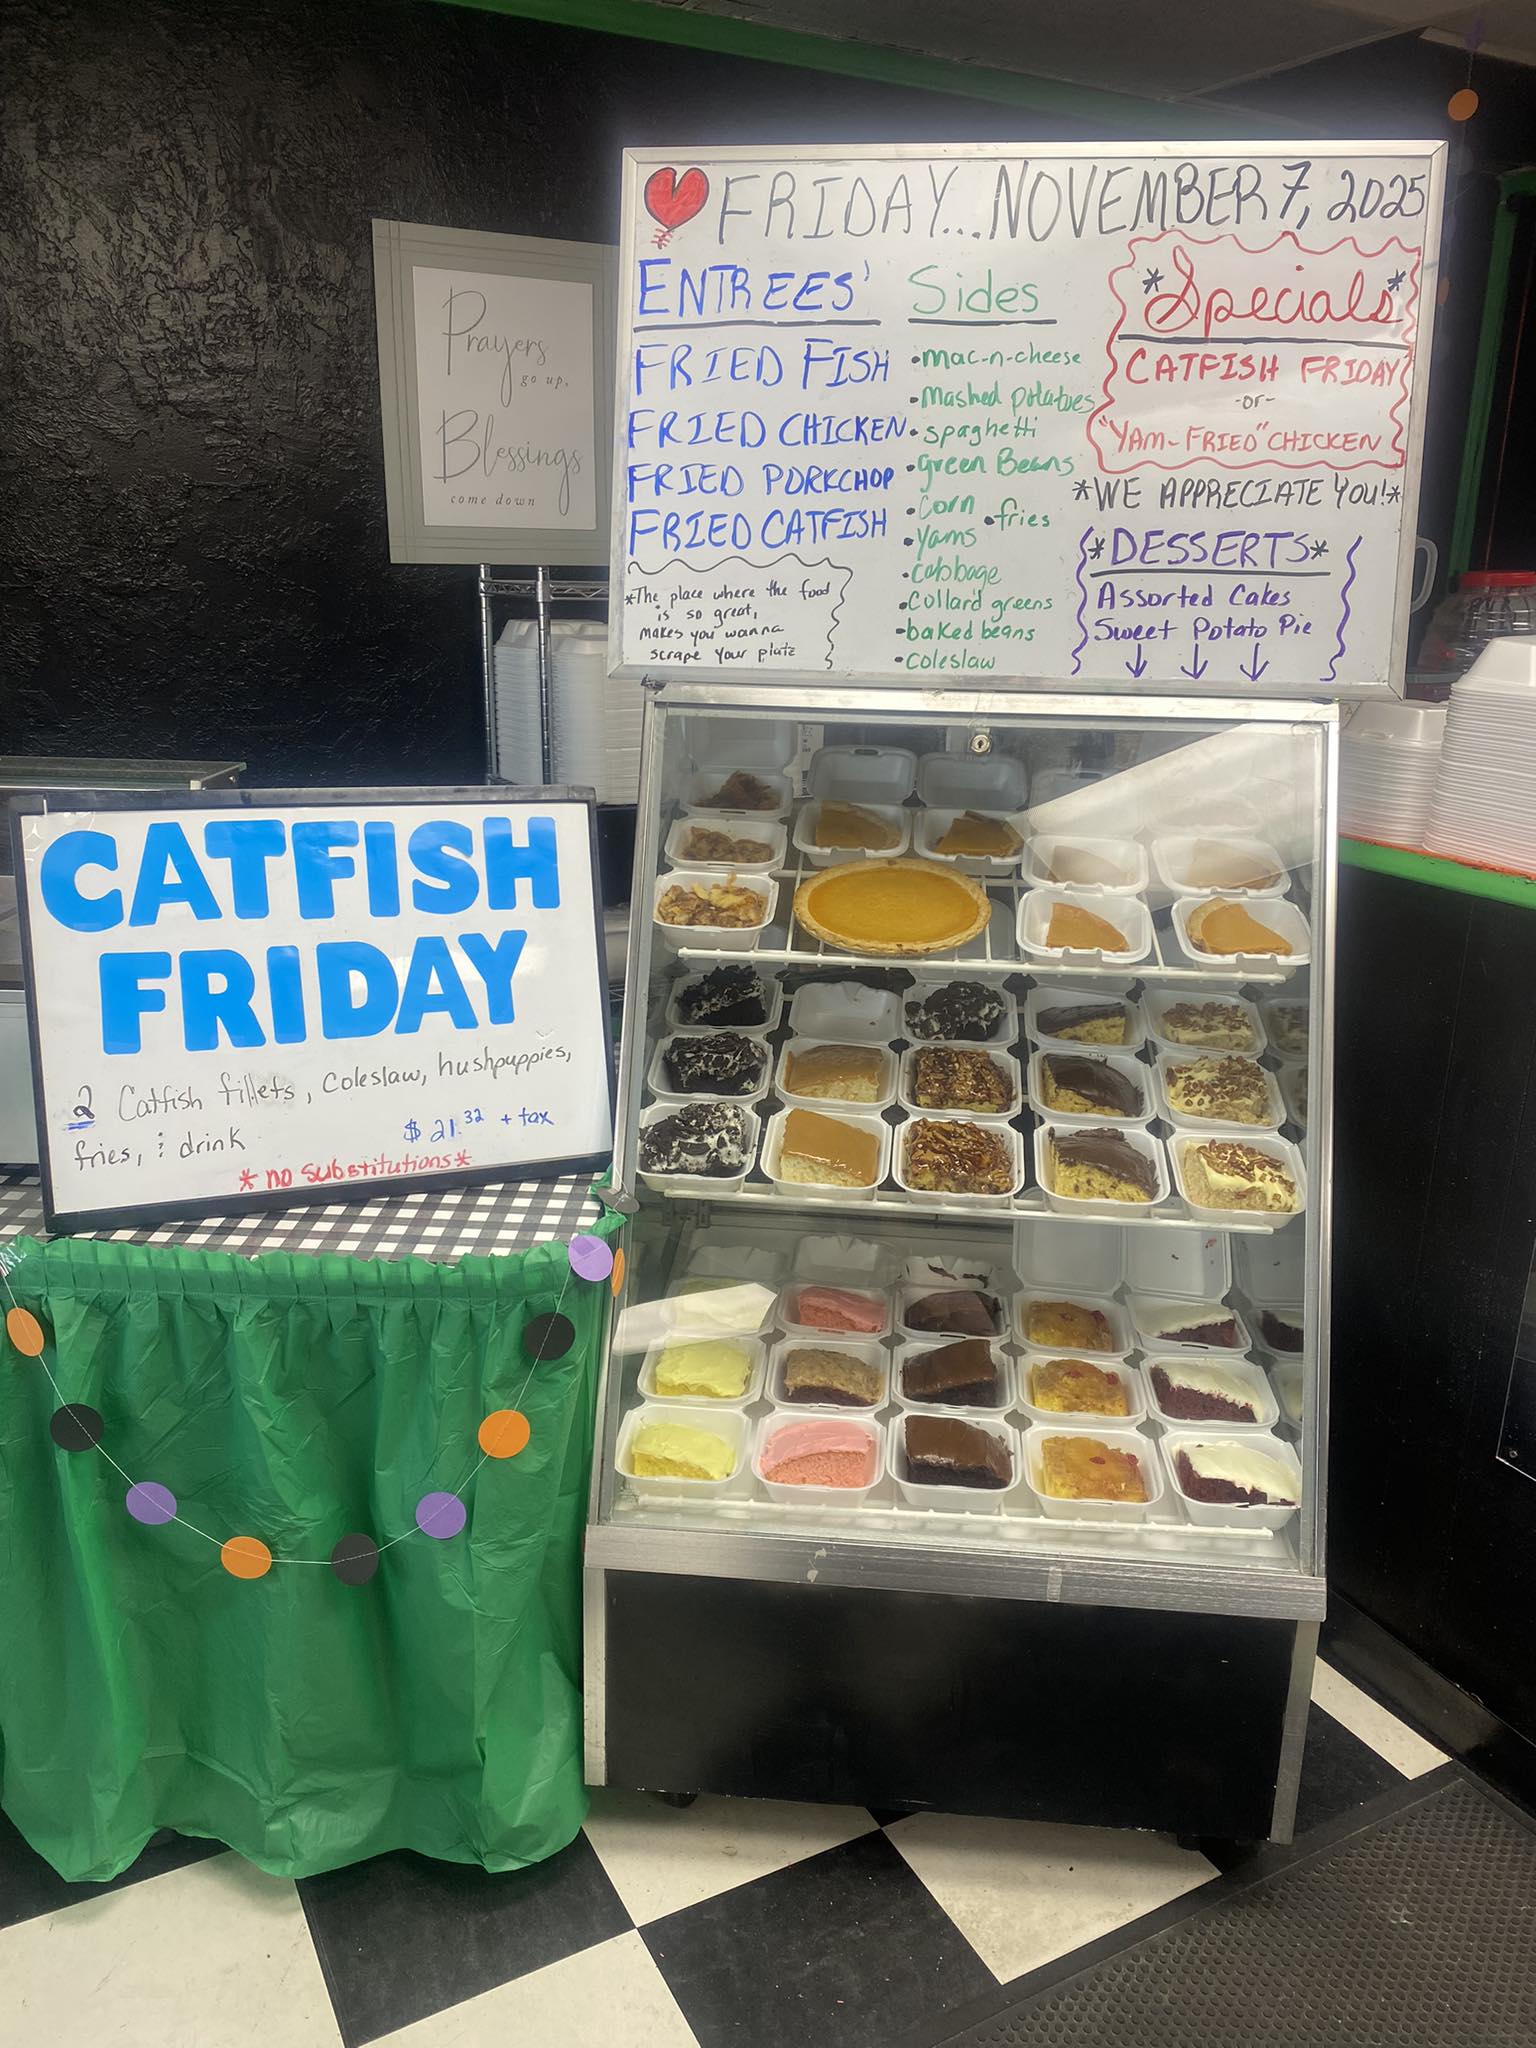 FRIDAY...NOVEMBER 7, 2025
ENTREES'
FRIED FISH
FRIED CHICKEN
FRIED PORKCHOP
FRIED CATFISH
*The place where the food
is so great,
makes you wanna
scrape your plate
Sides
•mac-n-cheese
•Mashed potatoes
•spaghetti
•green Beans
•Corn •fries
•Yams
•cabbage
•Collard greens
•baked beans
•coleslaw
*Specials*
CATFISH FRIDAY
-or-
"YAM-FRIED" CHICKEN
*WE APPRECIATE YOU!*
*DESSERTS*
Assorted Cakes
Sweet Potato Pie
Prayers
go up,
Blessings
come down
CATFISH
FRIDAY
2 Catfish fillets, Coleslaw, hushpuppies,
fries, & drink
$21.32 + tax
*no substitutions*